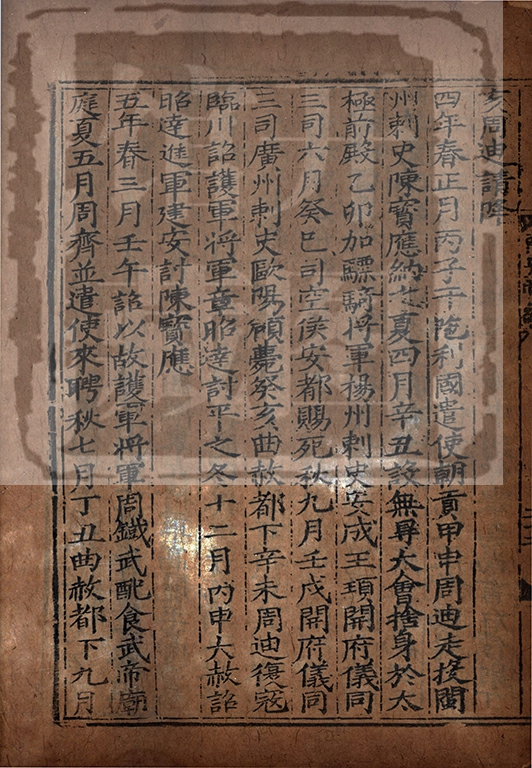 亥周迪請降
四年春正月丙子干陁利國遣使朝貢甲申周迪走投閩
州刺史陳寳應納之夏四月辛丑設無㝵大會捨身於太
極前殿乙卯加驃騎將軍揚州刺史安成王頊開府儀同
三司六月癸巳司空侯安都賜死秋九月壬戌開府儀同
三司廣州刺史歐陽頠薨癸亥曲赦都下辛未周迪復寇
臨川詔護軍將軍章昭達討平之冬十二月丙申大赦詔
昭達進軍建安討陳寳應
五年春三月壬午詔以故護軍將軍周鐵武配食武帝廟
庭夏五月周齊並遣使來聘秋七月丁丑曲赦都下九月